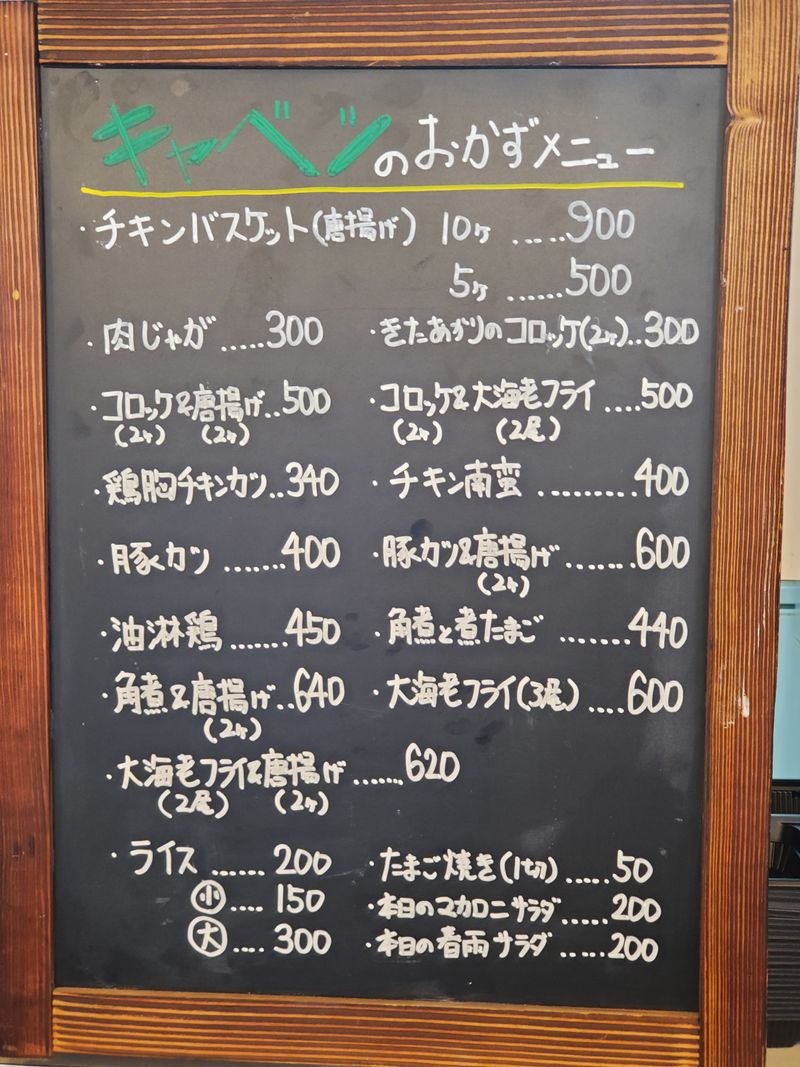 キャベツのおかずメニュー
・チキンバスケット(唐揚げ) 10ヶ ......900
5ヶ ......500
・肉じゃが .....300
・きたあかりのコロッケ(2ヶ)..300
・コロッケ&唐揚げ..500
(2ヶ) (2ヶ)
・コロッケ&大海老フライ ....500
(2ヶ) (2尾)
・鶏胸チキンカツ..340
・チキン南蛮 .........400
・豚カツ .......400
・豚カツ&唐揚げ.......600
(2ヶ)
・油淋鶏 .......450
・角煮と煮たまご ........440
・角煮&唐揚げ..640
(2ヶ)
・大海老フライ(3尾) ....600
・大海老フライ&唐揚げ.......620
(2尾) (2ヶ)
・ライス ....... 200
㊙小 ..... 150
大 .... 300
・たまご焼き(1切) ...... 50
・本日のマカロニサラダ......200
・本日の春雨サラダ ......200